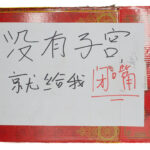 没有子宫
就给我闭嘴